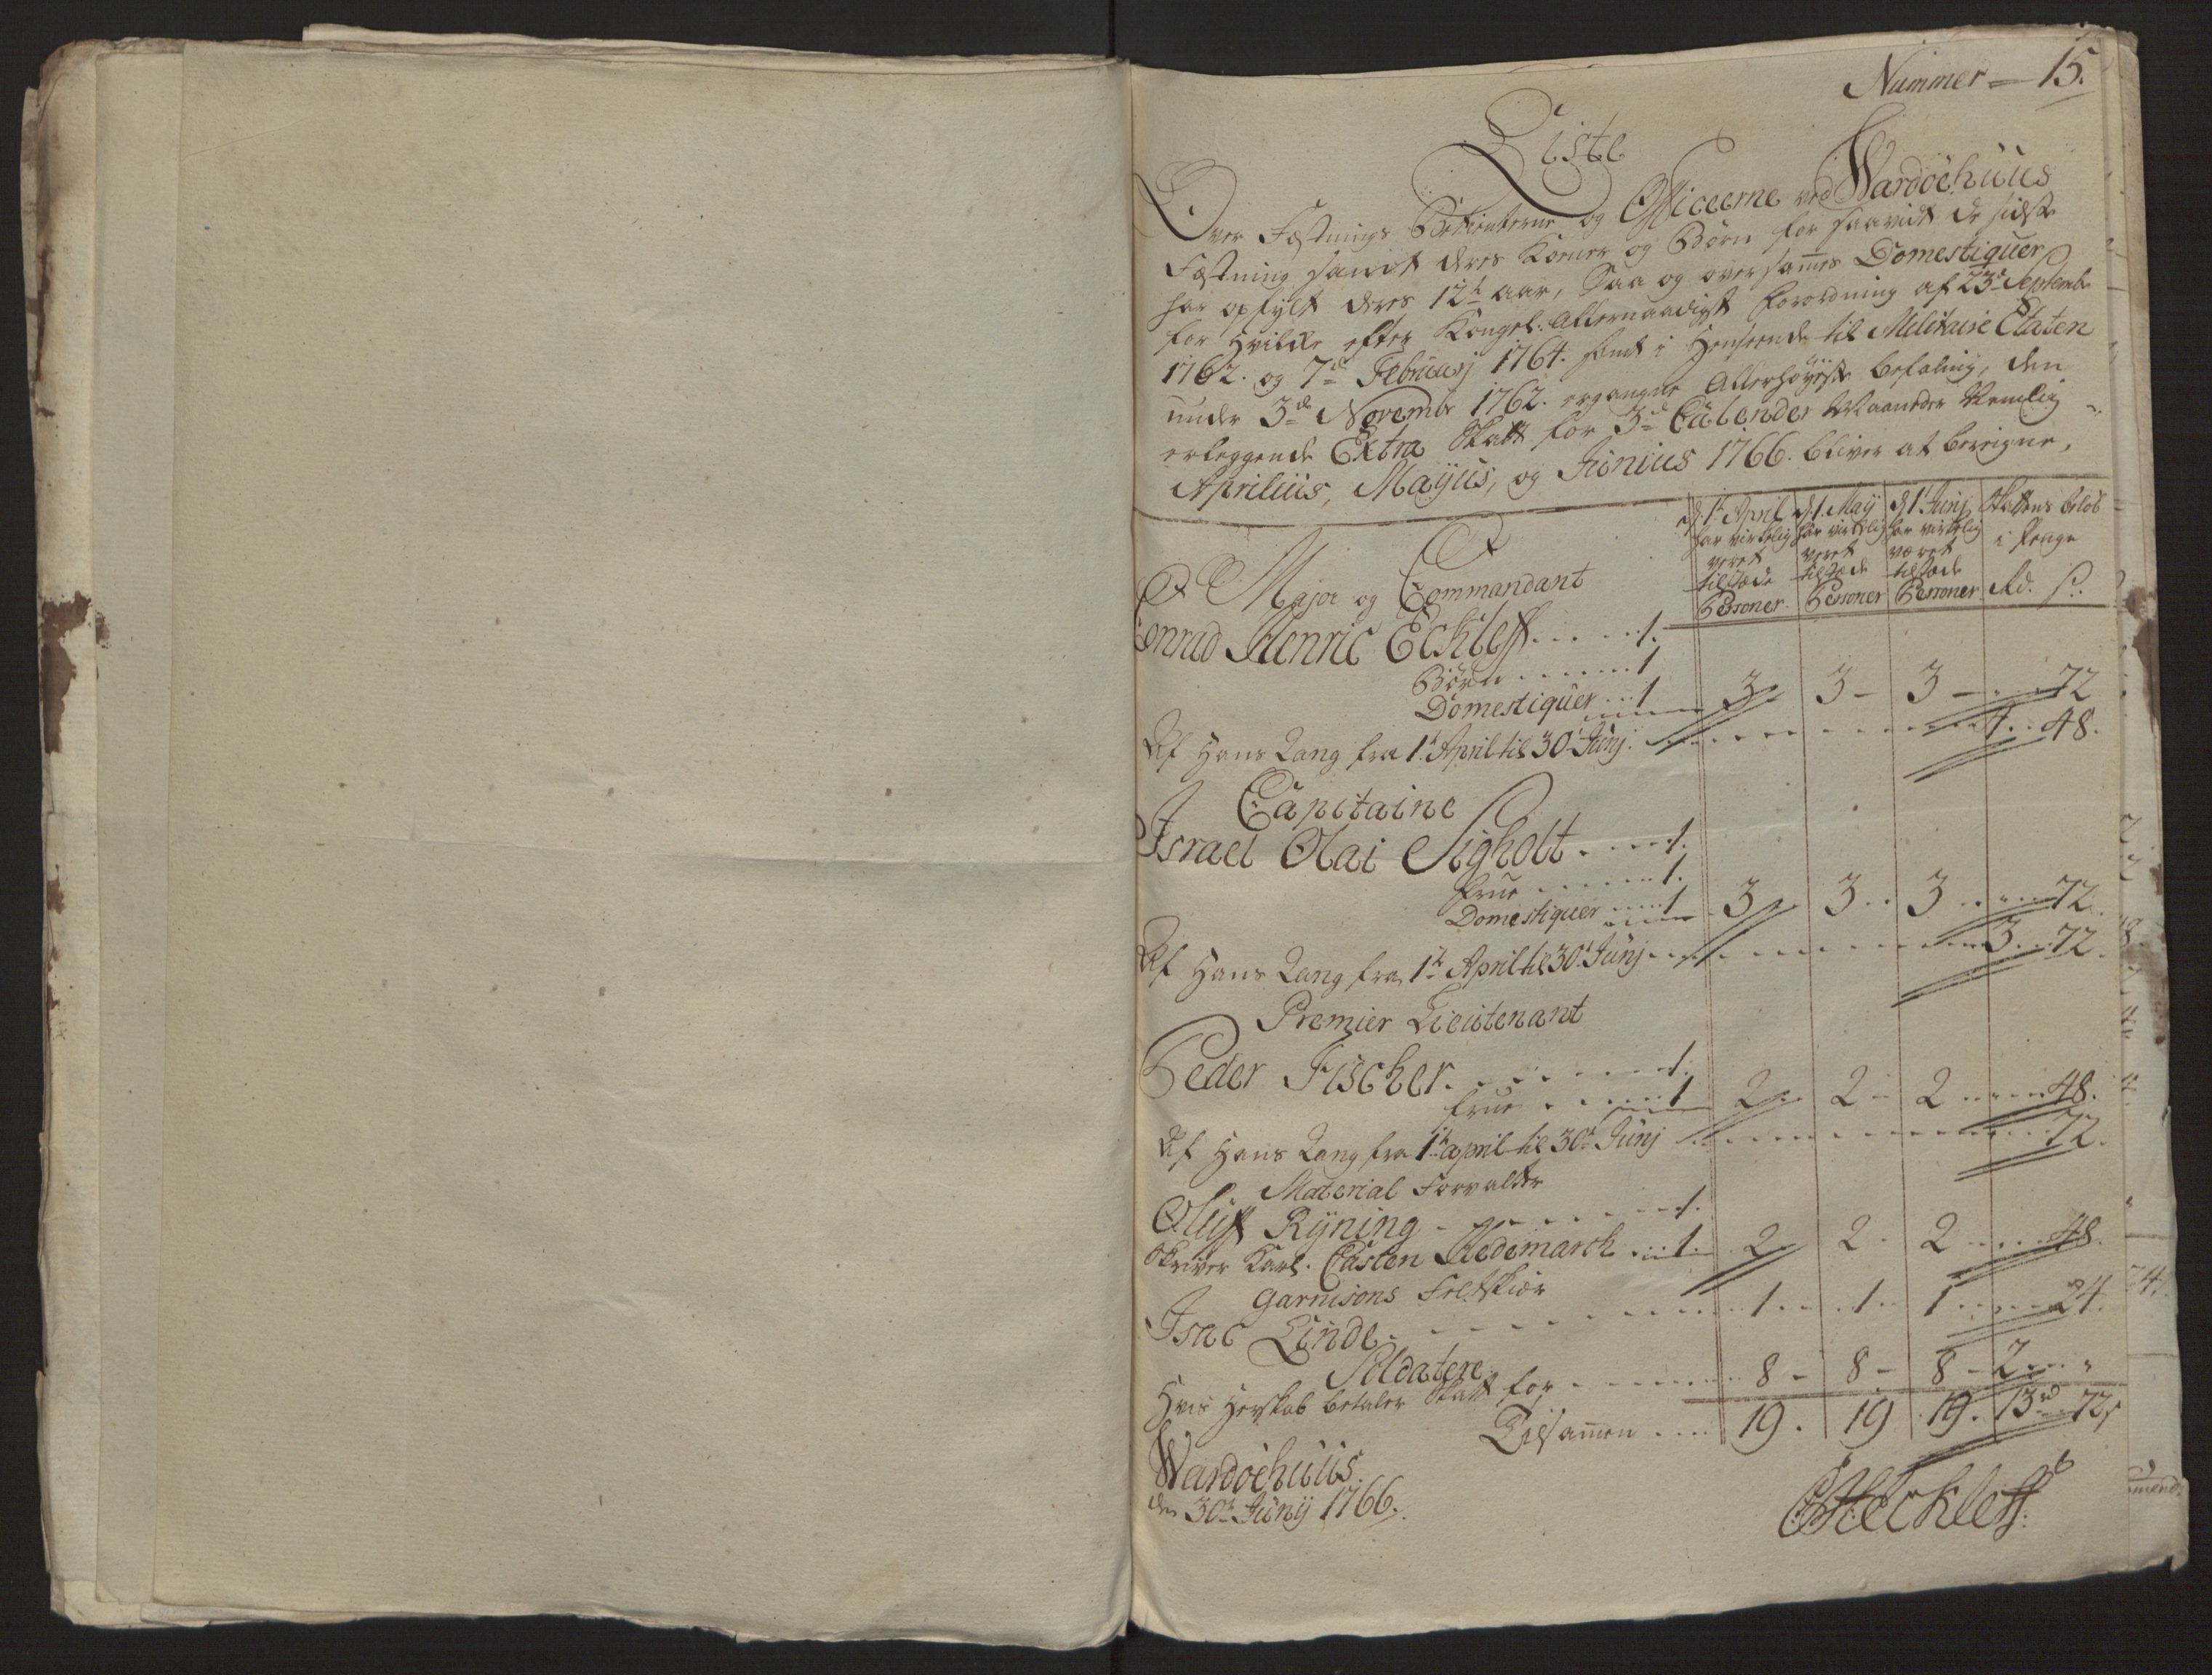 Nummer = 15.
Liste
Over Fæstnings Betienterne og Officeerne ved Wardöehuus
Fæstning samt deres Koener og Börn for saavidt de sidste
har opfylt deres 12te aar, Saa og over sammes Domestiquer
for hvilke efter Kongel: Allernaadigst forordning af 23de Septembr
1762. og 7de Februarij 1764. samt i Henseende til Militaire Etaten
under 3de Novembr 1762. ergangne Allerhöyeste befaling, den
erleggende Extra Skatt for 3de Calender Maaneder Nemlig
Aprilius, Mayus, og Junius 1766. bliver at bereigne,
d. 1te April har virkelig veret tilstæde Personer
d. 1. Maij har virkelig veret tilstæde Personer
d. 1 Junij har virkelig været tilstæde Personer
Skattens belöb i Penge Rd. s.
Major og Commandant
Conrad Henric Eckleff . . . . 1.
Börn . . . . . . 1
Domestiquer . . . 1 3 3 - 3 - . . . 72
Af Hans Gang fra 1te April til 30te Junij . . . . 4 . . 48.
Capitaine
Israel Olai Sigholt . . . . 1.
frue . . . . . . . 1.
Domestiquer . . . . 1 3 . 3 . . 3 . . . . 72.
Af Hans Gang fra 1te April til 30te Junij . . . . 3 . . 72.
Premier Lieutenant
Peder Fischer . . . . . . 1.
frue . . . . . 1 2 . 2 - 2 . . . . 48.
Af Hans Gang fra 1te april til 30te Junij . . . . 72.
Material Forvalter
Oluff Ryning - . . . . . . 1.
Skriver Karl. Casten Hedemarck . . . 1. 2 2 - 2 . . . . 48.
Garnisons Feltskiær
Isac Linde . . . . . . . 1 . . 1 . . 1 . . . . 24.
Soldatere
Hvis Herskab betaler Skatt for . . . . . 8 - 8 - 8 - 2 . . . "
Tilsamen . . . . 19. 19 19. 13rd . 72s
Wardöehuus
den 30te Junij 1766.
CHEckleff.